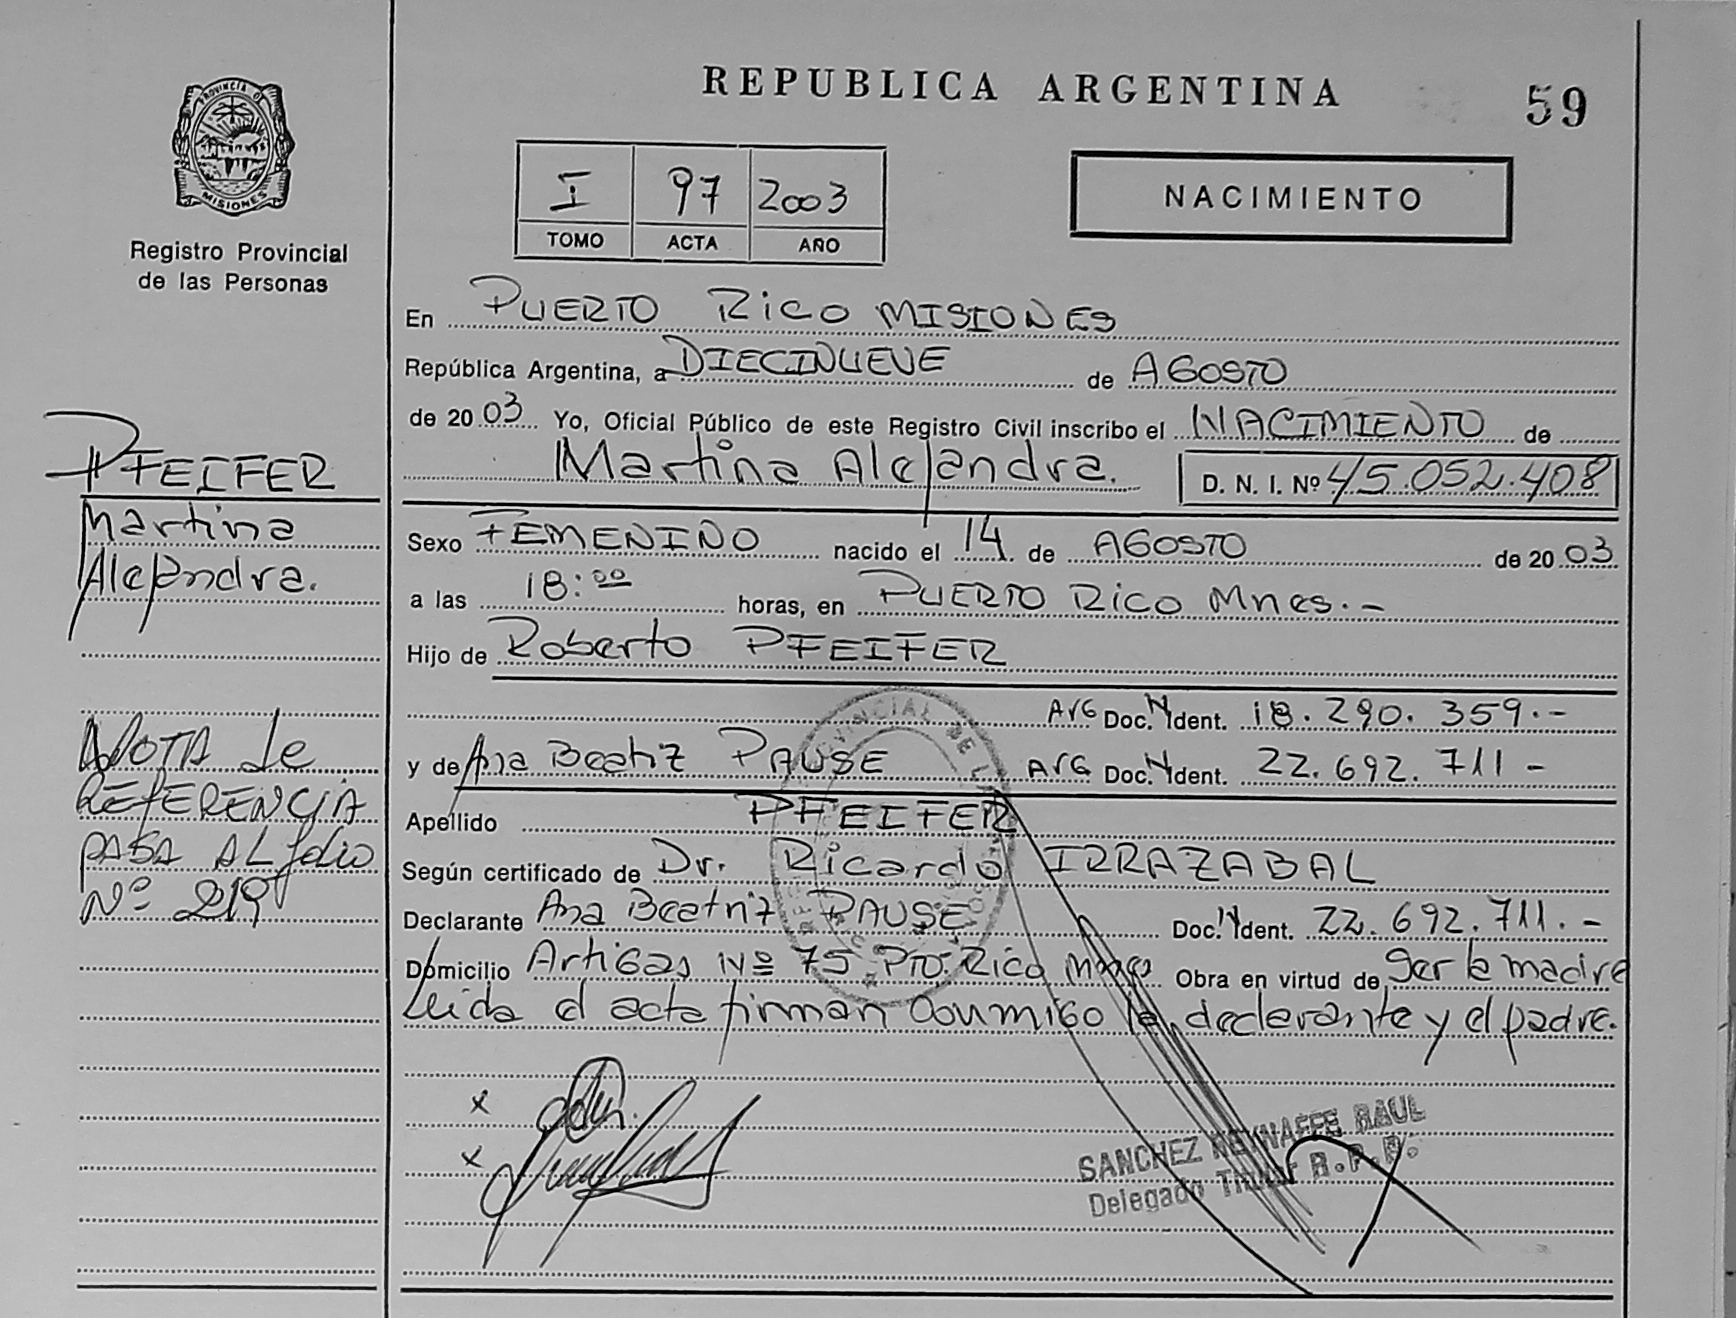 REPUBLICA ARGENTINA
59
PROVINCIA DE
MISIONES
Registro Provincial
de las Personas
I 97 2003
TOMO ACTA AÑO
NACIMIENTO
En PUERTO RICO MISIONES
República Argentina, a DIECINUEVE de AGOSTO
de 20 03 Yo, Oficial Público de este Registro Civil inscribo el NACIMIENTO de
Martina Alejandra. D. N. I. Nº 45.052.408
PFEIFER
Martina
Alejandra.
Sexo FEMENINO nacido el 14 de AGOSTO de 20 03
a las 18:00 horas, en PUERTO RICO Mnes.-
Hijo de Roberto PFEIFER
Arg Doc. N Ident. 18.290.359.-
y de Ana Beatriz PAUSE Arg Doc. N Ident. 22.692.711-
Apellido PFEIFER
Según certificado de Dr. Ricardo IRRAZABAL
Declarante Ana Beatriz PAUSE Doc. N Ident. 22.692.711.-
Domicilio Artigas Nº 75 Pto. Rico Mnes Obra en virtud de ser la madre
Leida el acta firman conmigo la declarante y el padre.
NOTA de
REFERENCIA
PASA AL folio
Nº 219
x
x
SANCHEZ REYNAFFE RAUL
Delegado Titular R.P.P.